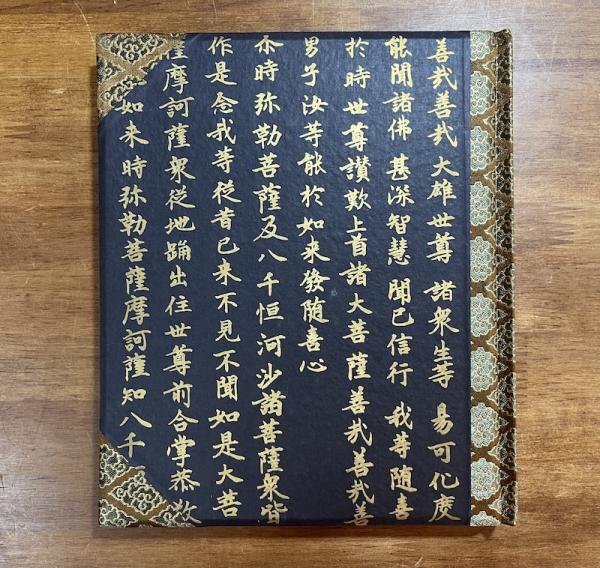 善哉善哉 大雄世尊 諸衆生等 易可化度
能聞諸佛 甚深智慧 聞已信行 我等随喜
於時世尊讃歎上首諸大菩薩善哉善哉善
男子汝等能於如来發随喜心
尒時弥勒菩薩及八千恒河沙諸菩薩衆皆
作是念我等従昔已来不見不聞如是大菩
薩摩訶薩衆従地踊出住世尊前合掌恭敬
如来時弥勒菩薩摩訶薩知八千